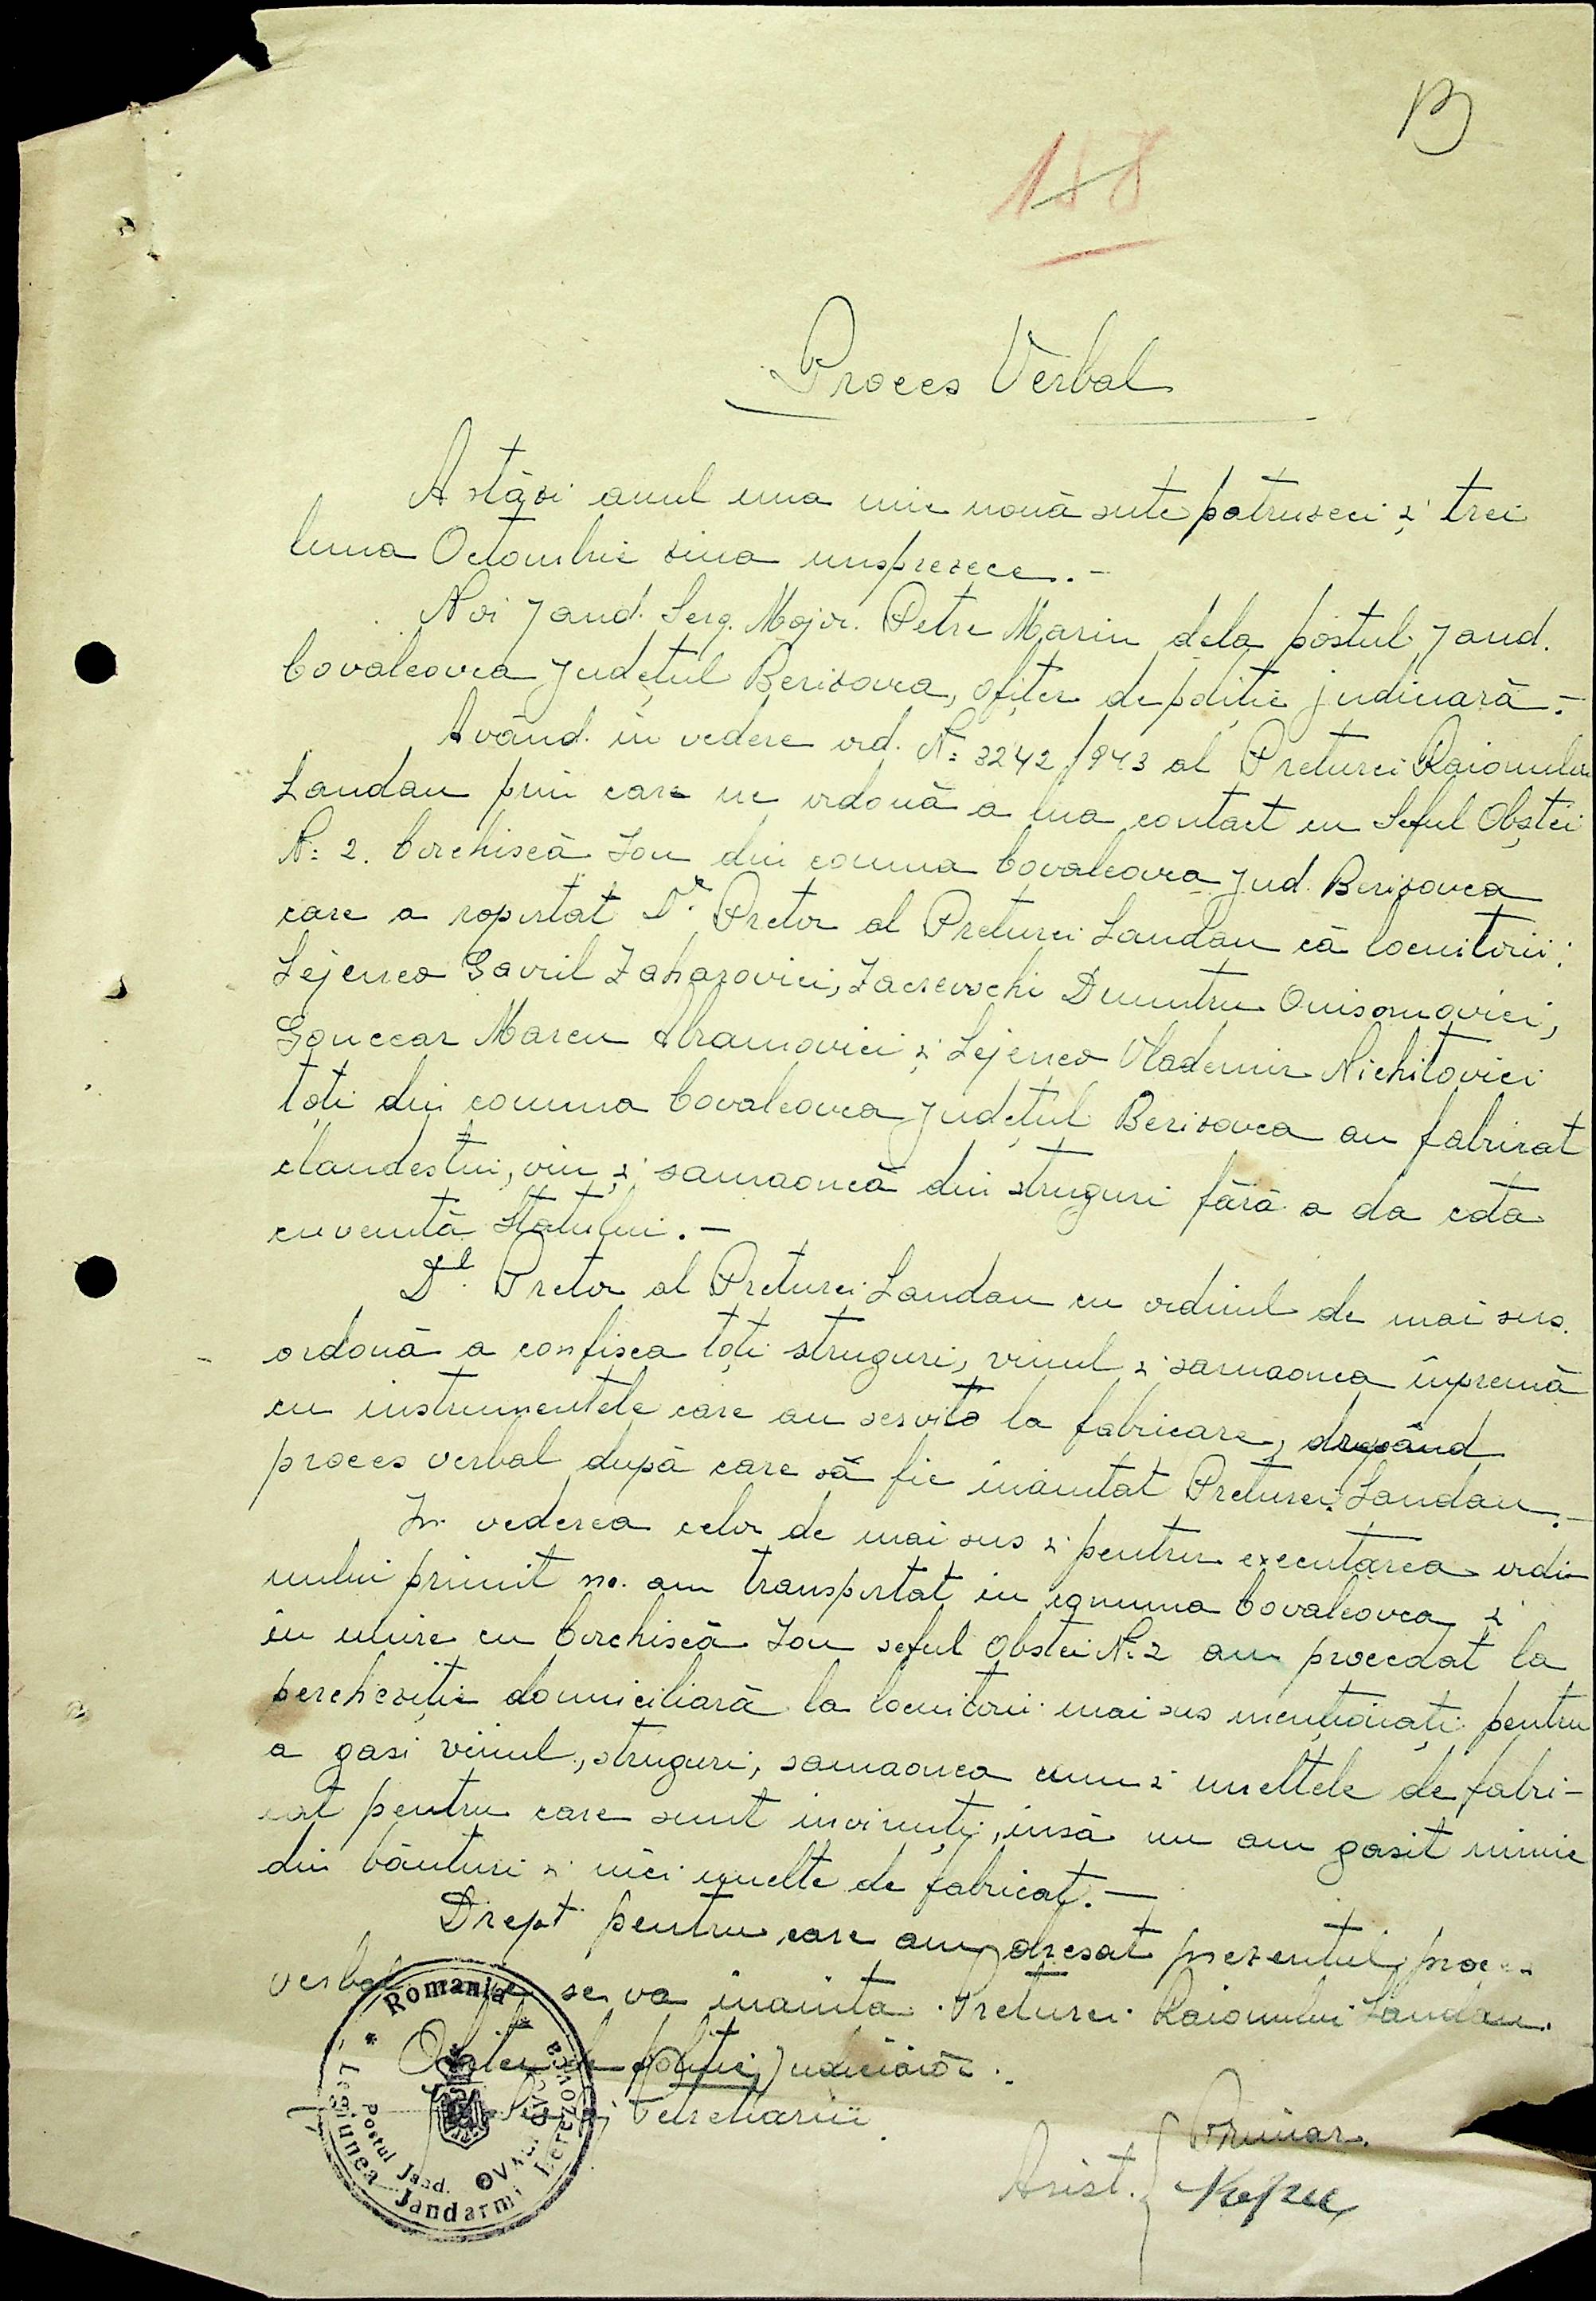 13
188
Proces Verbal
Astăzi anul una mie nouă sute patruzeci și trei
luna Octombrie ziua unsprezece.-
Noi Jand. Serg. Major. Petre Marin dela postul Jand.
Covaleovca Județul Berizovca, ofițer de poliție judiciară.-
Având în vedere ord. Nº 3242/943 al Preturei Raionului
Landau prin care ne ordonă a lua contact cu Seful Obștei
Nº 2. Corchiscă Ion din comuna Covaleovca Jud. Berizovca
care a raportat Dˡ Pretor al Preturei Landau că locuitorii:
Lejenco Gavril Zaharovici, Zacrevschi Dumitru Onisomovici,
Gonccar Marcu Abramovici și Lejenco Vlademir Nichitovici
toți din comuna Covaleovca Județul Berizovca au fabricat
clandestin, vin și samaoncă din struguri fără a da cota
cuvenită Statului.-
Dˡ. Pretor al Preturei Landau cu ordinul de mai sus
ordonă a confisca toți struguri, vinul și samaonca împreună
cu instrumentele care au servit la fabricare, dresând
proces verbal după care să fie înaintat Preturei Landau.-
In vederea celor de mai sus și pentru executarea ordi-
nului primit ne am transportat în comuna Covaleovca și
în unire cu Corchiscă Ion seful Obstei Nº 2 am procedat la
percheziție domiciliară la locuitorii mai sus menționați pentru
a gasi vinul, struguri, samaonca cum și uneltele de fabri-
cat pentru care sunt invinuiți, însă nu am gasit nimic
din băuturi și nici unelte de fabricat.-
Drept pentru care am dresat prezentul proces
verbal se va înainta Preturei Raionului Landau.
Ofiter de Politie Judiciară
Petre Marin
Primar.
Asist.
Romania
Legiunea Jandarmi Berezovca
Postul Jand.